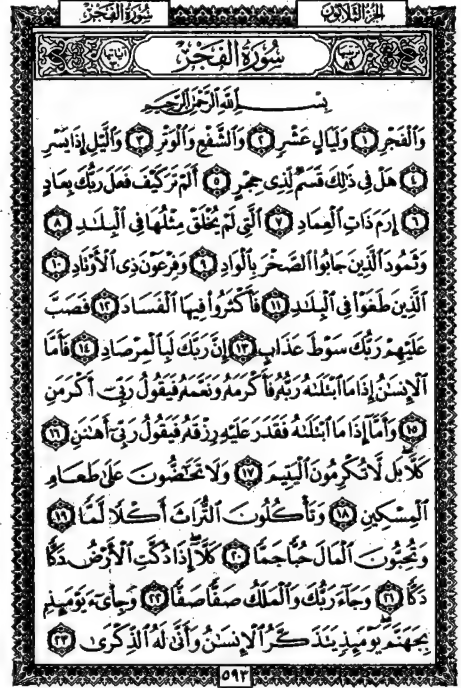 الجزء الثلاثون سورة الفجر
سُورَةُ الفَجْرِ
بِسْمِ اللَّهِ الرَّحْمَٰنِ الرَّحِيمِ
وَالْفَجْرِ ١ وَلَيَالٍ عَشْرٍ ٢ وَالشَّفْعِ وَالْوَتْرِ ٣ وَاللَّيْلِ إِذَا يَسْرِ
٤ هَلْ فِي ذَٰلِكَ قَسَمٌ لِّذِي حِجْرٍ ٥ أَلَمْ تَرَ كَيْفَ فَعَلَ رَبُّكَ بِعَادٍ
٦ إِرَمَ ذَاتِ الْعِمَادِ ٧ الَّتِي لَمْ يُخْلَقْ مِثْلُهَا فِي الْبِلَٰدِ ٨
وَثَمُودَ الَّذِينَ جَابُوا الصَّخْرَ بِالْوَادِ ٩ وَفِرْعَوْنَ ذِي الْأَوْتَادِ ١٠
الَّذِينَ طَغَوْا فِي الْبِلَٰدِ ١١ فَأَكْثَرُوا فِيهَا الْفَسَادَ ١٢ فَصَبَّ
عَلَيْهِمْ رَبُّكَ سَوْطَ عَذَابٍ ١٣ إِنَّ رَبَّكَ لَبِالْمِرْصَادِ ١٤ فَأَمَّا
الْإِنسَٰنُ إِذَا مَا ابْتَلَىٰهُ رَبُّهُ فَأَكْرَمَهُ وَنَعَّمَهُ فَيَقُولُ رَبِّي أَكْرَمَنِ
١٥ وَأَمَّا إِذَا مَا ابْتَلَىٰهُ فَقَدَرَ عَلَيْهِ رِزْقَهُ فَيَقُولُ رَبِّي أَهَٰنَنِ ١٦
كَلَّا بَل لَّا تُكْرِمُونَ الْيَتِيمَ ١٧ وَلَا تَحَٰضُّونَ عَلَىٰ طَعَامِ
الْمِسْكِينِ ١٨ وَتَأْكُلُونَ التُّرَاثَ أَكْلًا لَّمًّا ١٩
وَتُحِبُّونَ الْمَالَ حُبًّا جَمًّا ٢٠ كَلَّا إِذَا دُكَّتِ الْأَرْضُ دَكًّا
دَكًّا ٢١ وَجَاءَ رَبُّكَ وَالْمَلَكُ صَفًّا صَفًّا ٢٢ وَجِايءَ يَوْمَئِذٍ
بِجَهَنَّمَ يَوْمَئِذٍ يَتَذَكَّرُ الْإِنسَٰنُ وَأَنَّىٰ لَهُ الذِّكْرَىٰ ٢٣
٥٩٣